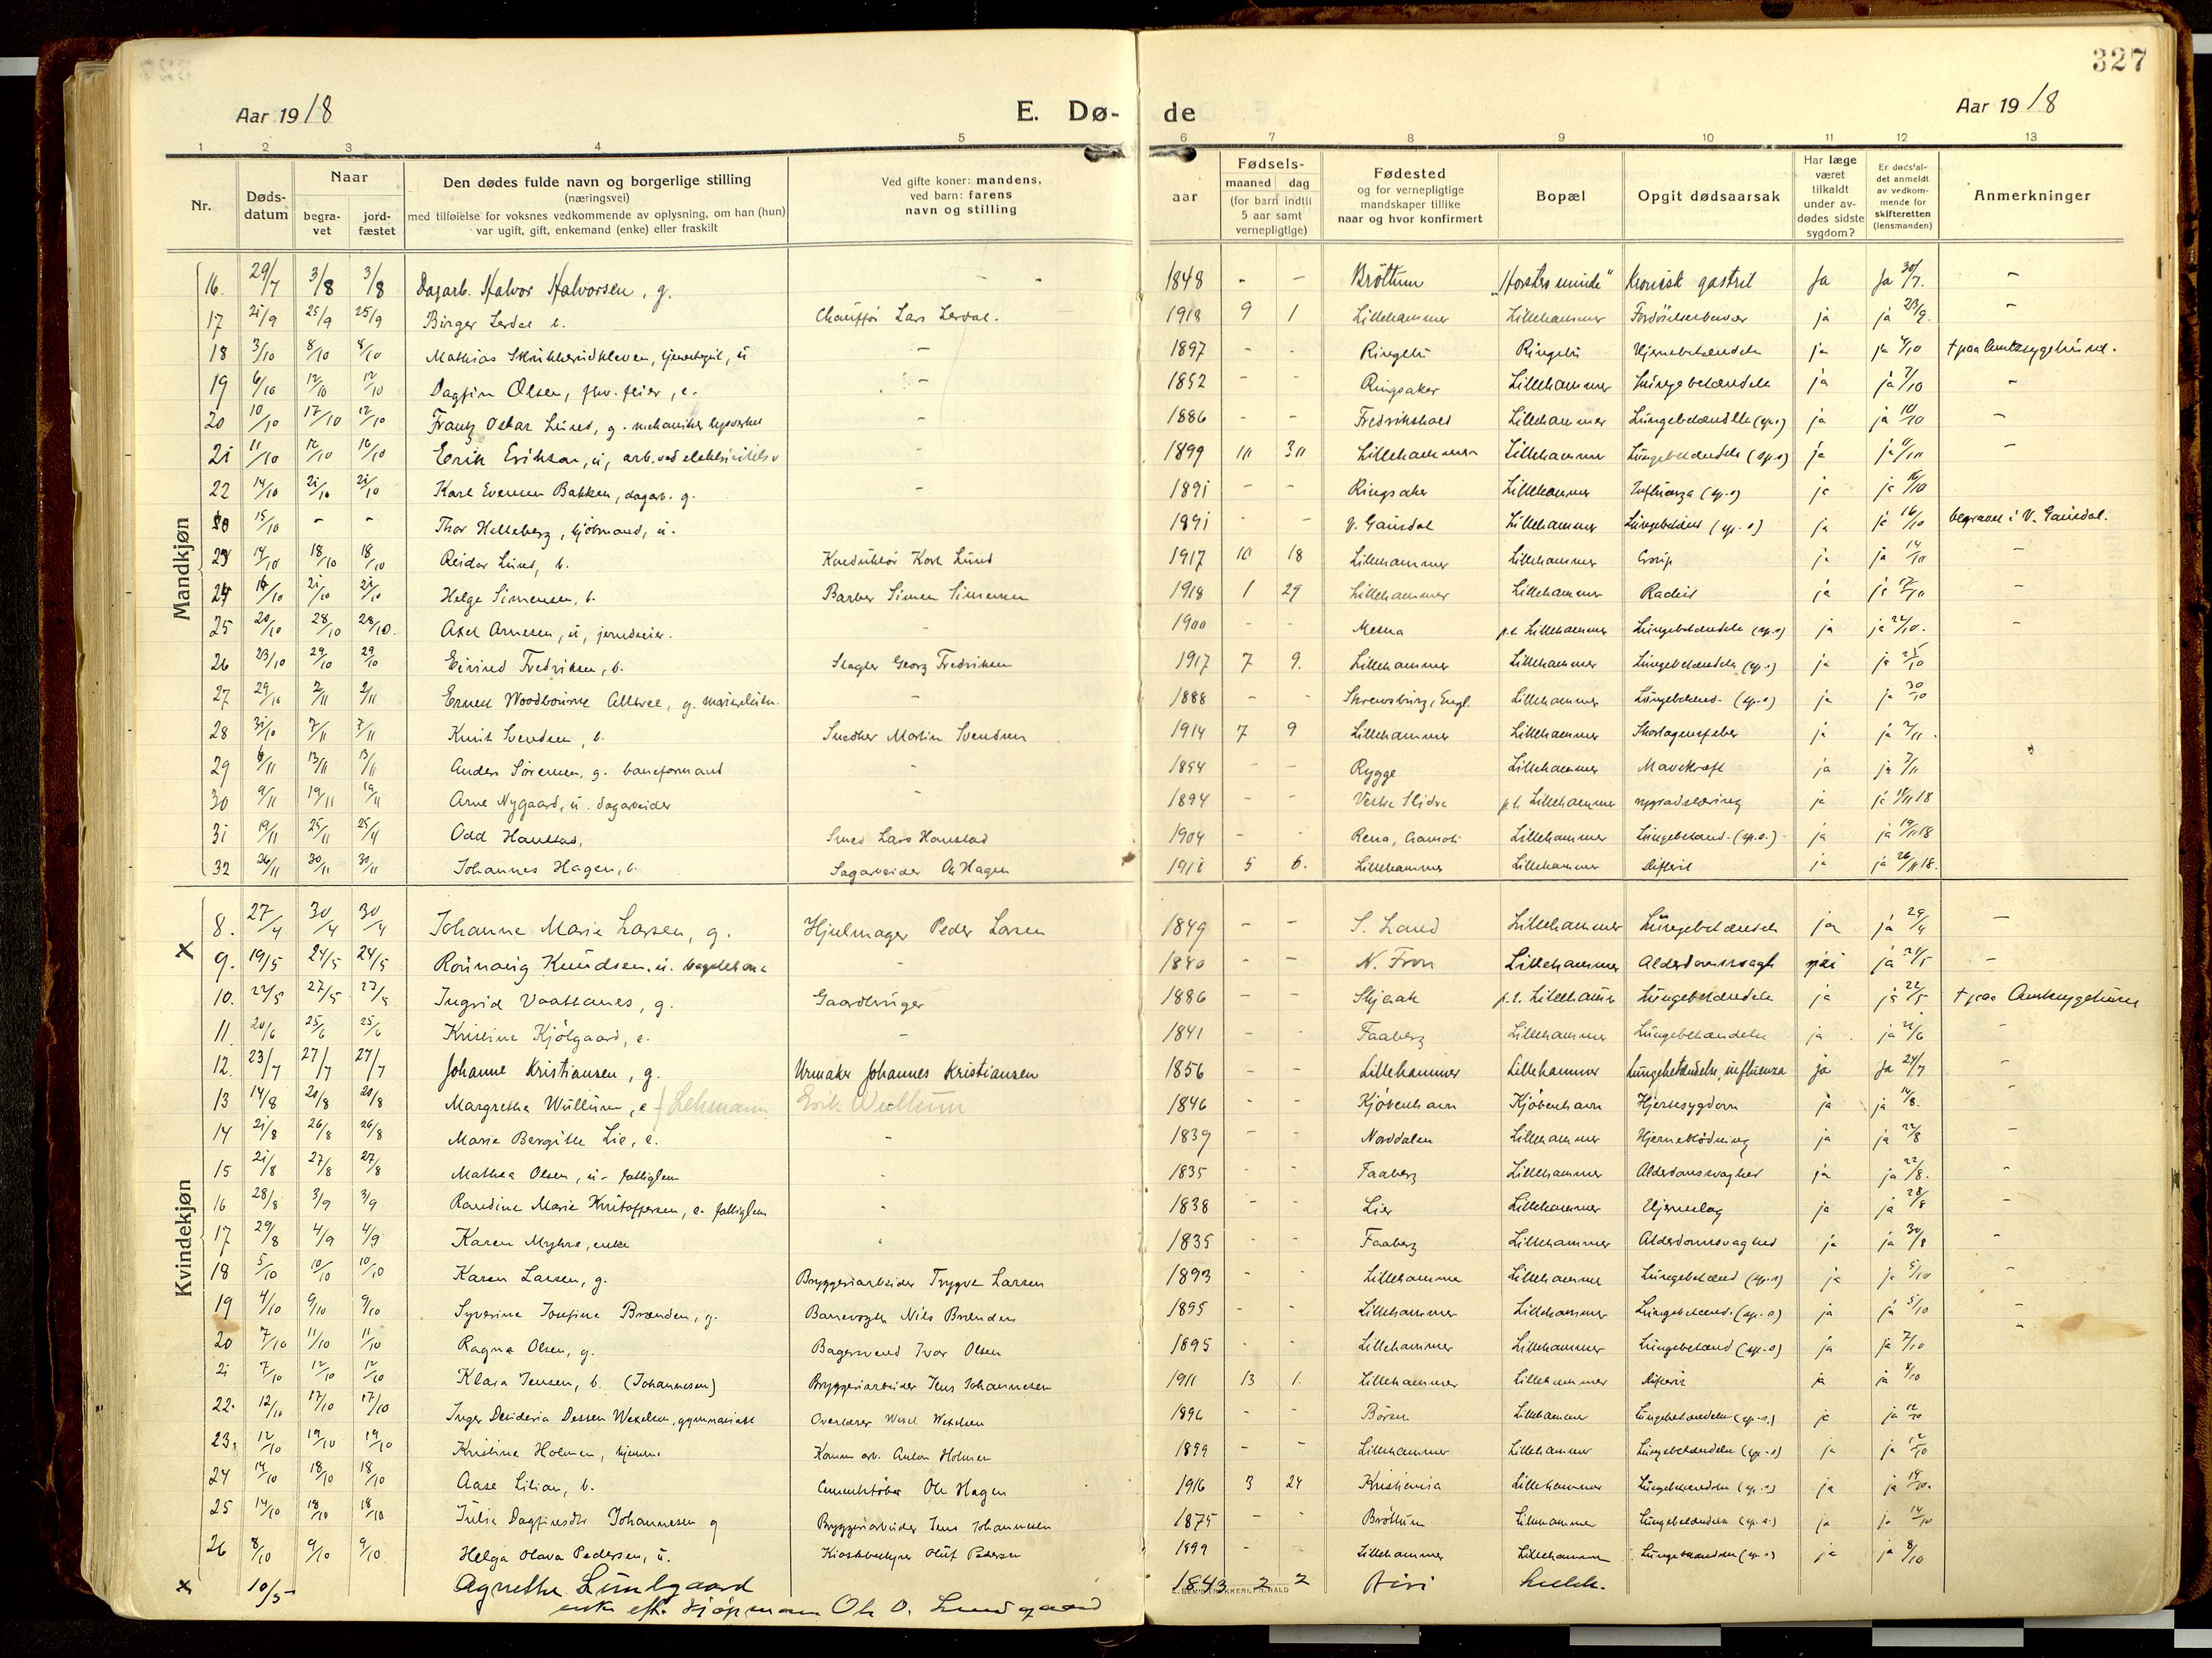 327
Aar 1918
E. Dø-
de
Aar 1918
1 2 3 4 5 6 7 8 9 10 11 12 13
Nr.
Døds-
datum
Naar
begra-
vet
jord-
fæstet
Den dødes fulde navn og borgerlige stilling
(næringsvei)
med tilføielse for voksnes vedkommende av oplysning, om han (hun)
var ugift, gift, enkemand (enke) eller fraskilt
Ved gifte koner: mandens,
ved barn: farens
navn og stilling
aar
Fødsels-
maaned dag
(for barn indtil
5 aar samt
vernepligtige)
Fødested
og for vernepligtige
mandskaper tillike
naar og hvor konfirmert
Bopæl
Opgit dødsaarsak
Har læge
været
tilkaldt
under av-
dødes sidste
sygdom?
Er dødsfal-
det anmeldt
av vedkom-
mende for
skifteretten
(lensmanden)
Anmerkninger
Mandkjøn
16. 29/7 3/8 3/8 Dagarb. Halvor Halvorsen, g. - 1848 - - Brøttum Kronisk gastrit Ja Ja 30/7. -
17 21/9 25/9 25/9 Birger Lerdal b. Chauffør Lars Lerdal. 1918 9 1 Lillehammer Lillehammer ja ja 23/9. -
18 3/10 8/10 8/10 Mathias - 1897 - - Ringebu Ringebu Hjernebetændelse ja ja 4/10 † paa Amtssygehuset.
19 6/10 12/10 12/10 Dagfin Olsen, fhv. feier, e. - 1852 - - Ringsaker Lillehammer Lungebetændelse ja ja 7/10 -
20 10/10 17/10 17/10 Frantz Oskar Lund, g. mekaniker - 1886 - - Fredrikshald Lillehammer Lungebetændelse (sp.s) ja ja 10/10 -
21 11/10 16/10 16/10 Erik Erikson, u, arb. ved - 1899 10 30 Lillehammer Lillehammer Lungebetændelse (sp.s) ja ja -
22 14/10 21/10 21/10 Karl Evensen Bakken, dagarb. g. - 1891 - - Ringsaker Lillehammer Influenza (sp.s) ja ja 16/10
15/10 - - Thor Helleberg, kjøbmand, u. 1891 - - V. Gausdal Lillehammer (sp.s) ja ja 16/10 begravet i V. Gausdal.
23 14/10 18/10 18/10 Reidar Lund, b. Konduktør Karl Lund 1917 10 18 Lillehammer Lillehammer Croup ja ja 14/10 -
24 16/10 21/10 21/10 Helge Simensen, b. Barber Simen Simensen 1918 1 29 Lillehammer Lillehammer Rachit ja ja 17/10 -
25 20/10 28/10 28/10. Axel Arnesen, u, jerndreier. - 1900 - - Mesna p.t. Lillehammer Lungebetændelse (sp.s) ja ja 22/10. -
26 23/10 29/10 29/10 Eivind Fredriksen, b. Slagter Georg Fredriksen 1917 7 9. Lillehammer Lillehammer Lungebetændelse (sp.s) ja ja 25/10 -
27 29/10 2/11 2/11 Ernest Woodbourne g. - 1888 - - Shrewsbury, Engl. Lillehammer Lungebetænd. (sp.s) ja ja 30/10
28 31/10 7/11 7/11 Knut Svendsen, b. Snedker Martin Svendsen 1914 7 9 Lillehammer Lillehammer Skarlagensfeber ja ja 2/11.
29 6/11 13/11 13/11 Anders Sørensen, g. baneformand - 1854 - - Rygge Lillehammer Mavekræft ja ja 7/11
30 9/11 19/11 19/11 Arne Nygaard, u. dagarbeider - 1894 - - Vestre Slidre p.t. Lillehammer ja ja 11/11 18
31 19/11 25/11 25/11 Odd Hanstad, Smed Lars Hanstad 1904 - - Rena, Aamot Lillehammer Lungebetænd. (sp.s.) ja ja 19/11 18
32 26/11 30/11 30/11 Johannes Hagen, b. Sagarbeider Hagen 1918 5 6. Lillehammer Lillehammer Difterit ja ja 26/11 18.
Kvindekjøn
8. 27/4 30/4 30/4 Johanne Marie Larsen, g. Hjulmager Peder Larsen 1849 - - S. Land Lillehammer Lungebetændelse ja ja 29/4 -
x 9. 19/5 24/5 24/5 Rønnaug Knudsen. u. - 1840 - - N. Fron Lillehammer Alderdomssvagh nei ja 21/5 -
10. 22/5 27/5 27/5 Ingrid Vaattanes, g. Gaardbruger 1886 - - Skjaak p.t. Lillehamer Lungebetændelse ja ja 22/5 † paa Amtssygehuset
11. 20/6 25/6 25/6 Kristine Kjølgaard, e. - 1841 - - Faaberg Lillehammer Lungebetændelse ja ja 21/6 -
12. 23/7 27/7 27/7 Johanne Kristiansen, g. Urmaker Johannes Kristiansen 1856 - - Lillehammer Lillehammer Lungebetændelse, influenza ja Ja 24/7 -
13 14/8 20/8 20/8 Margrethe Wullum, e f. Lehmann Erik Wullum 1846 - - Kjøbenhavn Kjøbenhavn Hjertesygdom ja ja 14/8. -
14 21/8 26/8 26/8 Marie Bergitte Lie, e. - 1839 - - Norddalen Lillehammer Hjerneblødning ja ja 22/8 -
15 21/8 27/8 27/8 Mathea Olsen, u. fattiglem - 1835 - - Faaberg Lillehammer Alderdomssvaghed ja ja 22/8. -
16 28/8 3/9 3/9 Randine Marie Kristoffersen, e. fattiglem - 1838 - - Lier Lillehammer Hjerneslag ja ja 28/8 -
17 29/8 4/9 4/9 Karen Myhre, enke - 1835 - - Faaberg Lillehammer Alderdomssvaghed ja ja 30/8 -
18 5/10 10/10 10/10 Karen Larsen, g. Bryggeriarbeider Trygve Larsen 1893 - - Lillehammer Lillehammer Lungebetænd (sp.s) ja ja 5/10 -
19 4/10 9/10 9/10 Syverine Josefine Brænden, g. Banevogter Nils Brænden 1895 - - Lillehammer Lillehammer Lungebetænd. (sp.s) ja ja 5/10 -
20 7/10 11/10 11/10 Ragna Olsen, g. Bagersvend Ivar Olsen 1895 - - Lillehammer Lillehammer Lungebetænd (sp.s) ja ja 7/10 -
21 7/10 12/10 12/10 Klara Jensen, b. (Johannesen) Bryggeriarbeider Jens Johannesen 1911 13 1. Lillehammer Lillehammer Difterit ja ja 8/10
22. 12/10 17/10 17/10 Inger Desideria Dessen Wexelsen, gymnasiast Overlærer Wexel Wexelsen 1896 - - Børsen Lillehammer Lungebetændelse (sp.s.) ja ja 12/10
23. 12/10 19/10 19/10 Kristine Holmen, hjemme. Anton Holmen 1899 - - Lillehammer Lillehammer Lungebetændelse (sp.s) ja ja 12/10
24 14/10 18/10 18/10 Aase Lilian, b. Cementstøber Ole Hagen 1916 3 24 Kristiania Lillehammer Lungebetændelse (sp.s) ja ja 14/10.
25 14/10 18/10 18/10 Julie Dagfinsdtr Johannesen g Bryggeriarbeider Jens Johannesen 1875 - - Brøttum Lillehammer Lungebetændelse (sp.s.) ja ja 14/10
26 8/10 9/10 9/10 Helga Olava Pedersen, u. Kioskbestyrer Oluf Pedersen 1899 - - Lillehammer Lillehammer Lungebetændelse (sp.s) ja ja 8/10
x 10/5 Agnethe Lundgaard 1843 2 2 Biri Lilleh.
enke eft. Kjøpmann Ole O. Lundgaard